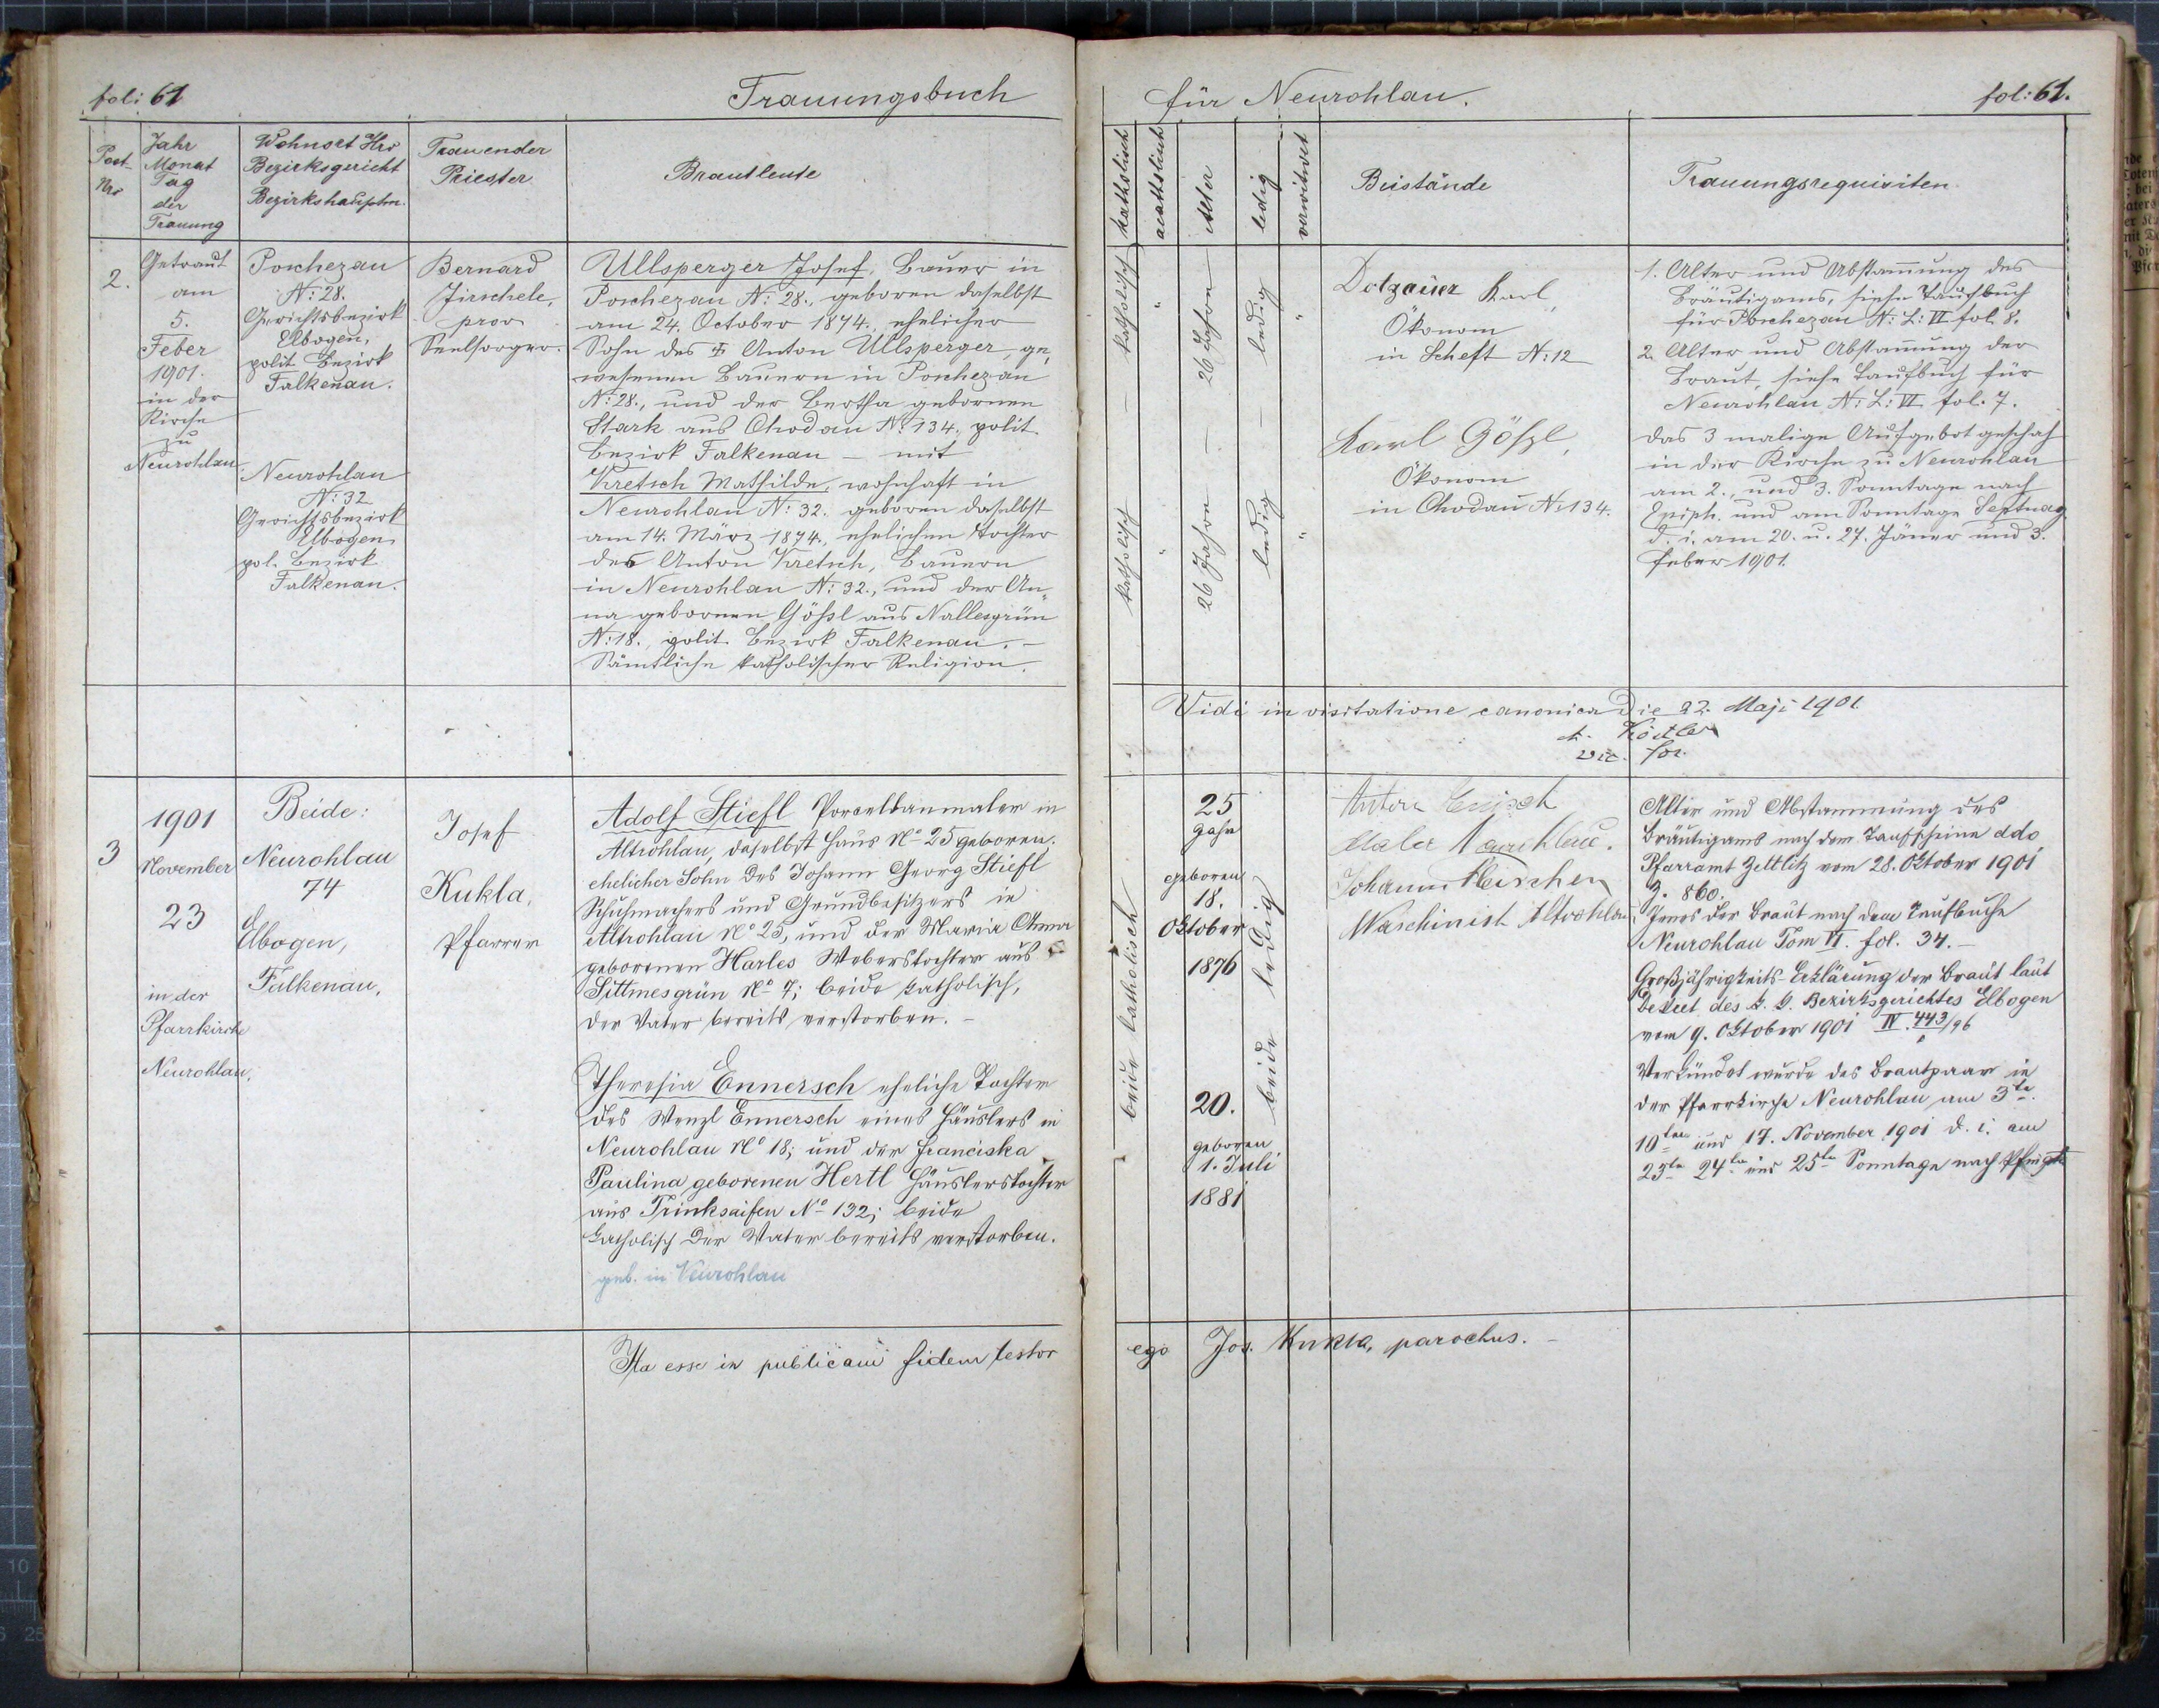 fol: 61
Trauungsbuch
Post-
Nro
Jahr
Monat
Tag
der
Trauung
Wohnort Hro
Bezirksgericht
Bezirkshauptm.
Trauender
Priester
Brautleute
2.
Getraut
am
5.
Feber
1901.
in der
Kirche
zu
Neurohlau.
Poschezau
N: 28.
Gerichtsbezirk
Elbogen,
polit Bezirk
Falkenau.
Neurohlau
N: 32
Gerichtsbezirk
Elbogen
pol. Bezirk
Falkenau.
Bernard
Jirschele,
prov.
Seelsorger.
Ullsperger Josef, Bauer in
Poschezau N: 28., geboren daselbst
am 24. October 1874., ehelicher
Sohn des ‡ Anton Ullsperger, ge„
wesenen Bauern in Poschezau
N: 28., und der Bertha gebornen
Stark aus Chodau N: 134., polit.
Bezirk Falkenau – mit
Kretsch Mathilde, wohnhaft in
Neurohlau N: 32. geboren daselbst
am 14. März 1874., ehelichen Tochter
des Anton Kretsch, Bauern
in Neurohlau N: 32., und der An„
na gebornen Gößl aus Nallesgrün
N: 18., polit. Bezirk Falkenau. –
Sämtliche katholischer Religion.
3
1901
November
23
in der
Pfarrkirche
Neurohlau.
Beide:
Neurohlau
74
Elbogen,
Falkenau,
Josef
Kukla,
Pfarrer
Adolf Stiefl Porcellanmaler in
Altrohlau, daselbst Haus No 25 geboren.
ehelicher Sohn des Johann Georg Stiefl
Schuhmachers und Grundbesitzers in
Altrohlau No 25, und der Maria Anna
geborenen Harles Weberstochter aus
Sittmesgrün No 7; beide katholisch,
der Vater bereits verstorben. –
Theresia Ennersch eheliche Tochter
des Wenzl Ennersch eines Häuslers in
Neurohlau No 18; und der Franciska
Paulina geborenen Hertl Häuslerstochter
aus Trinksaifen No 132; beide
katholisch der Vater bereits verstorben.
geb. in Neurohlau
Ita esse in publicam fidem testor
für Neurohlau.
fol: 61.
katholisch
acatholisch
Alter
ledig
verwitwet
Beistände
Trauungsrequisiten.
katholisch
"
26 Jahre
ledig
"
katholisch
"
26 Jahre
ledig
"
Dotzauer Karl,
Ökonom
in Scheft N: 12
Karl Gößl,
Ökonom
in Chodau N: 134.
1. Alter und Abstam̄ung des
Bräutigams, siehe Taufbuch
für Poschezau N: L: VI fol. 8.
2. Alter und Abstam̄ung der
Braut, siehe Taufbuch für
Neurohlau N: L: VI fol. 7.
das 3 malige Aufgebot geschah
in der Kirche zu Neurohlau
am 2., und 3. Sonntage nach
Epiph. und am Sonntage Septuag
d. i. am 20. u. 27. Jäner und 3.
Feber 1901.
Vidi in visitatione canonica die 22. Maji 1901
A. Köstler
vic. for.
beide katholisch
25
Jahr
geboren
18.
Oktober
1876
20.
geboren
1. Juli
1881
beide ledig
Anton
Maler
Johann
Maschinist Altrohlau
Alter und Abstammung des
Bräutigams nach dem Taufscheine ddo
Pfarramt Zettlitz vom 28. Oktober 1901
Z. 860.
Jenes der Braut nach dem Taufbuche
Neurohlau Tom VI. fol. 34. –
Großjährigkeits-Erklärung der Braut laut
Dekret des k. k. Bezirksgerichtes Elbogen
vom 9. Oktober 1901 IV. 443/96
Verkündet wurde das Brautpaar in
der Pfarrkirche Neurohlau am 3te.
10ten und 17. November 1901 d. i. am
23te 24te und 25te Sonntage nach Pfingsten
ego Jos. Kukla, parochus. –